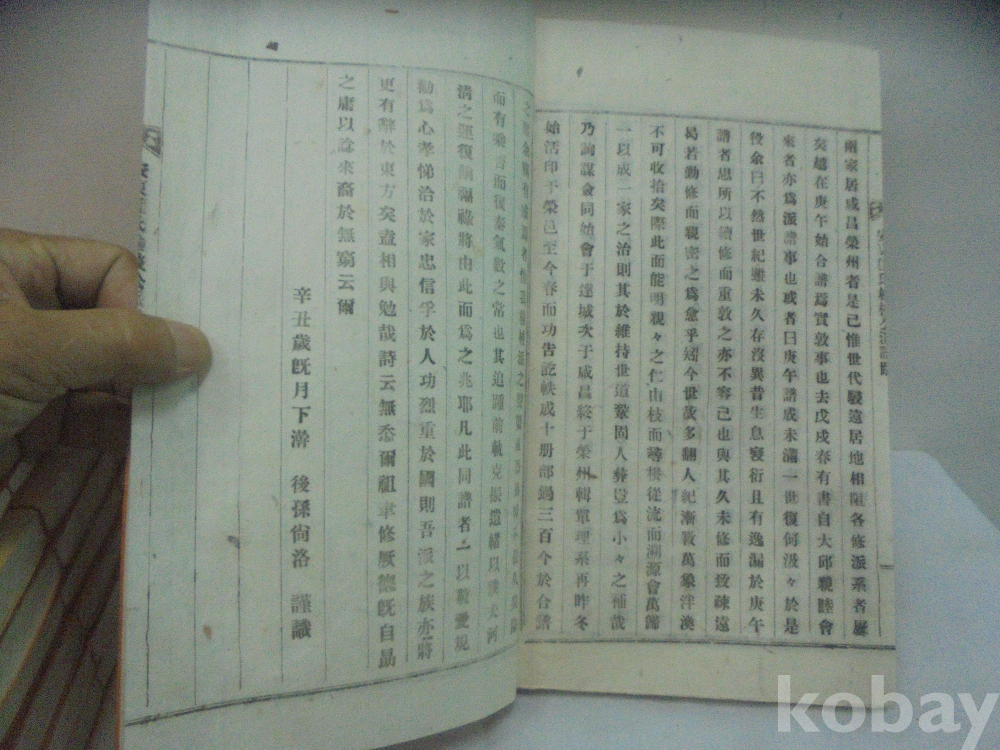 兩家居咸昌榮州者是已惟世代騣遠居地相阻各修派系者屢
矣越在庚午始合譜焉實敦事也去戊戌春有書自大邱親睦會
來者亦爲派譜事也或者曰庚午譜成未滿一世復何汲々於是
役余曰不然世紀雖未久存沒異昔生息寖衍且有逸漏於庚午
譜者思所以續修而重敦之亦不容已也與其久未修而致疎遠
曷若勤修而親密之爲愈乎矧今世故多飜人紀漸斁萬象泮渙
不可收拾矣際此而能明親々之仁由枝而尋根從流而溯源會萬歸
一以成一家之治則其於維持世道鞏固人彝豈爲小々之補哉
乃詢謀僉同始會于達城次于咸昌終于榮州輯單理系再昨冬
始活印于榮邑至今春而功告訖帙成十册部鍚三百个於合譜
而有乘音而復奏氣數之常也其追踵前軌克振遺緖以
淸之運復舊福祿將由此而爲之兆耶凡此同譜者一以敬愛規
勸爲心孝悌洽於家忠信孚於人功烈重於國則吾派之族亦將
更有辭於東方矣盍相與勉哉詩云無忝爾祖聿修厥德旣自勗
之庸以諗來裔於無窮云爾
辛丑歲旣月下澣 後孫尙洛 謹識
kobay